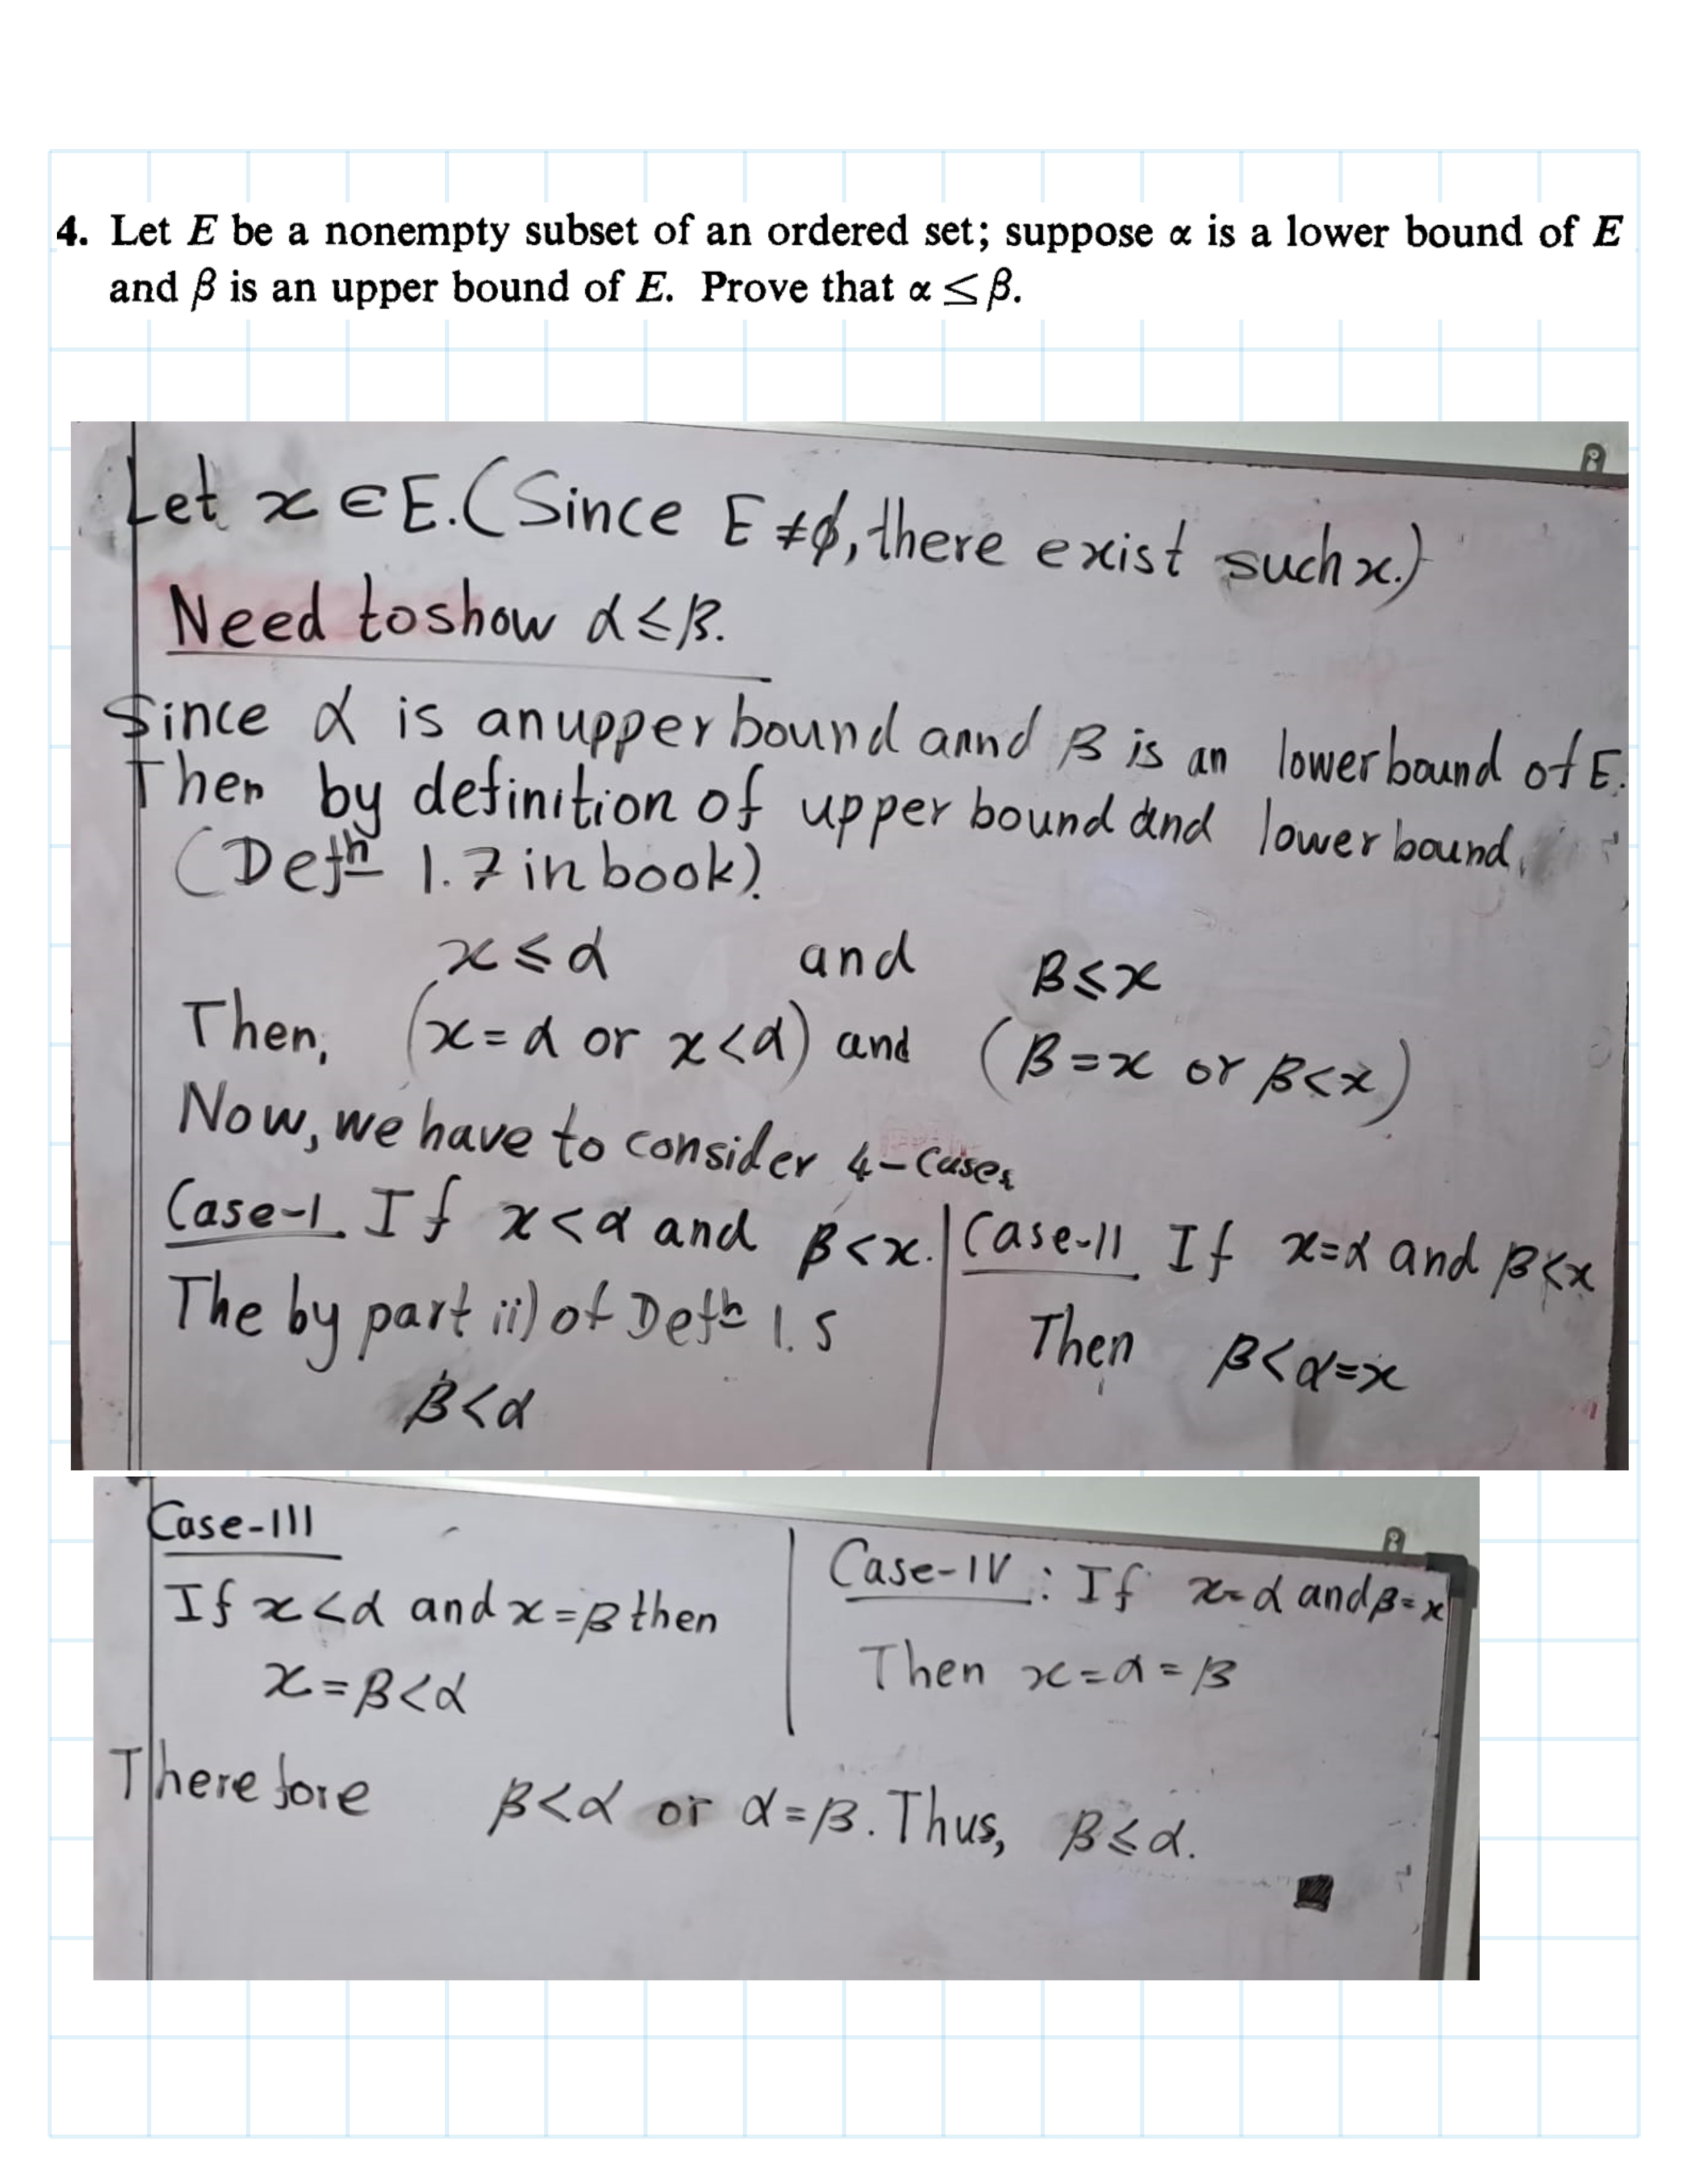 4. Let E be a nonempty subset of an ordered set; suppose α is a lower bound of E
and β is an upper bound of E. Prove that α ≤ β.
Let x ∈ E. (Since E ≠ ϕ, there exist such x.)
Need to show α ≤ β.
Since α is an upper bound annd β is an lower bound of E.
Then by definition of upper bound and lower bound.
(Defⁿ 1.7 in book).
x ≤ α and β ≤ x
Then, (x = α or x < α) and (β = x or β < x)
Now, we have to consider 4-cases
Case-I. If x < α and β < x.
The by part ii) of Defⁿ 1.5
β < α
Case-II If x = α and β < x
Then β < α = x
Case-III
If x < α and x = β then
x = β < α
Case-IV : If x = α and β = x
Then x = α = β
Therefore β < α or α = β. Thus, β ≤ α.